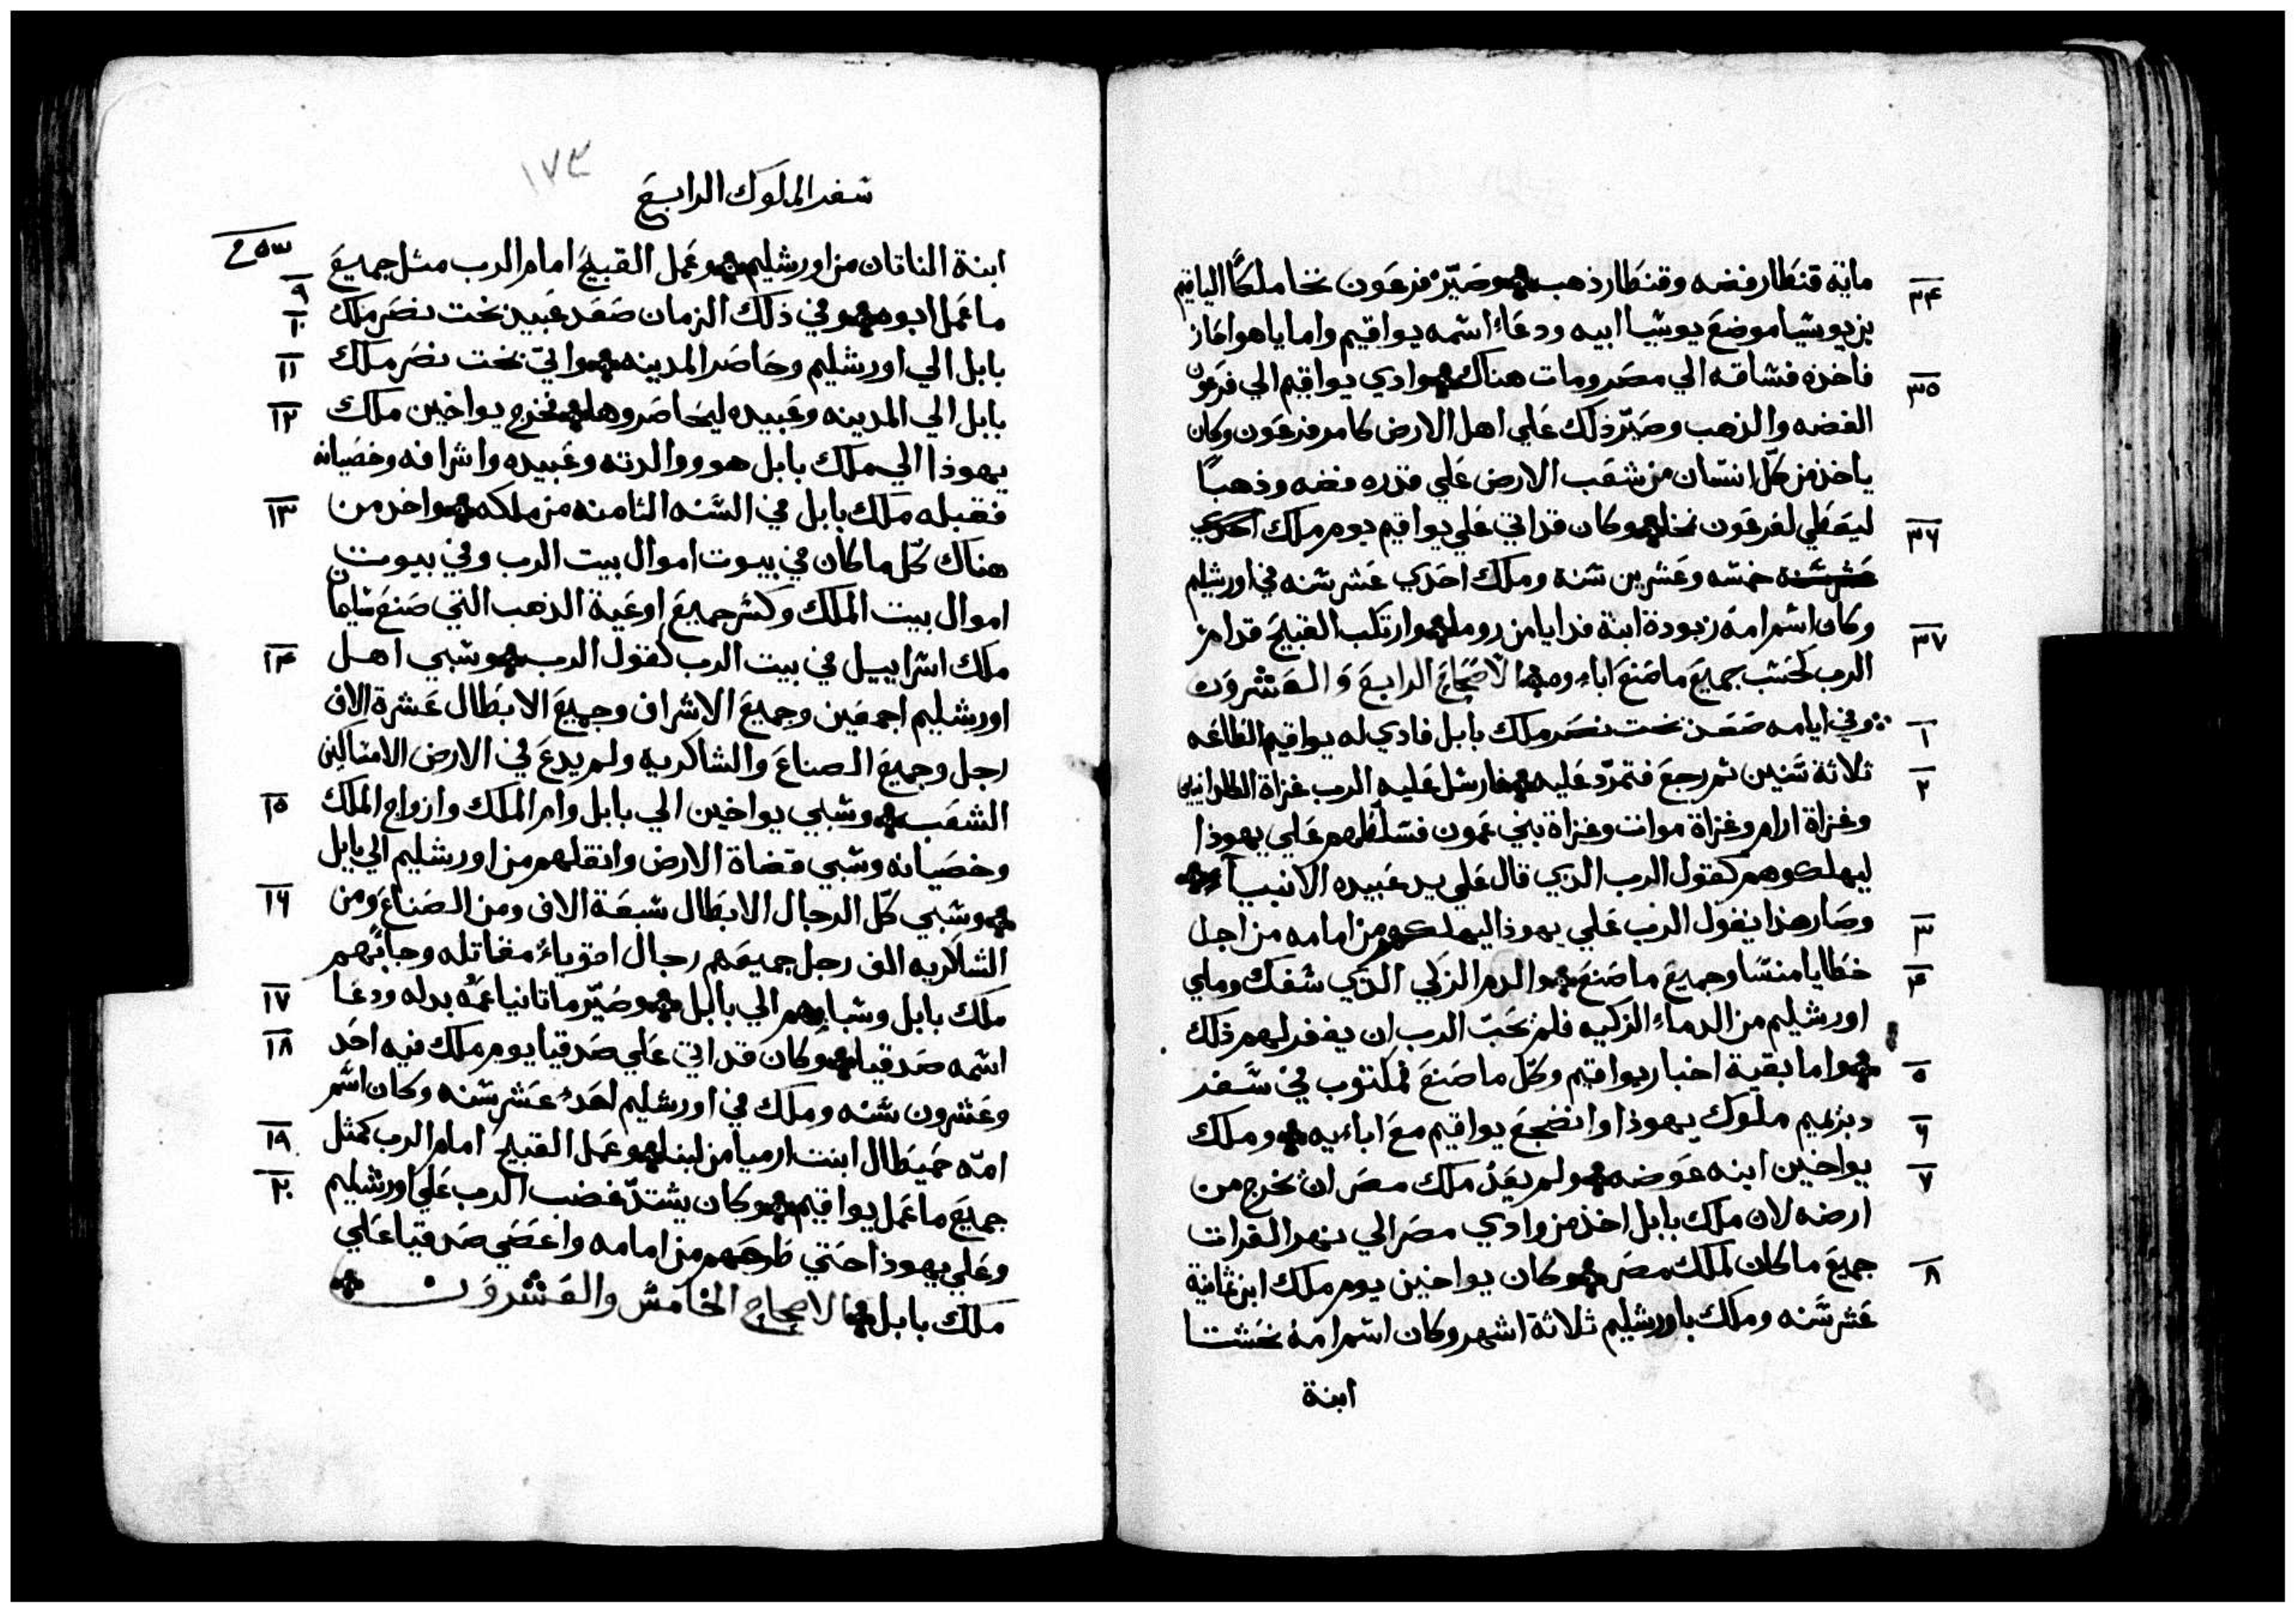 ماية قنطار فضه وقنطار ذهب وصيّر فرعون نخا ملكًا الياقيم
بن يوشيا موضع يوشيا ابيه ودعاء اسمه يواقيم واما ياهواحاز
فاخذه فساقه الي مصر ومات هناك وادي يواقيم الي فرعون
الفضه والذهب وصيّر ذلك علي اهل الارض كامر فرعون وكان
ياخذ من كلّ انسان من شعب الارض علي قدره فضه وذهبًا
ليعطي لفرعون نخا وكان قد اتي علي يواقيم يوم ملك احدي
عشر سنة خمسه وعشرين سنة وملك احدي عشر سنه في اورشليم
وكان اسم امه زبودة ابنة فدايا من روما وارتكب القبيح قدام
الرب كحسب جميع ما صنع اباءوه الاصحاح الرابع والعشرون
وفي ايامه صعد بخت نصر ملك بابل فادي له يواقيم الطاعه
ثلاثة سنين ثم رجع فتمرّد عليه فارسل عليه الرب غزاة
وغزاة ارام وغزاة مواب وغزاة بني عمون فسلطهم علي يهوذا
ليهلكوهم كقول الرب الذي قال علي يد عبيده الانبيآء
وصار هذا بقول الرب علي يهوذا ليهلكهم من امامه من اجل
خطايا منسا وجميع ما صنع والدم الزكي الذي سفك وملي
اورشليم من الدماء الزكيه فلم يحبّ الرب ان يغفر لهم ذلك
واما بقية اخبار يواقيم وكلّ ما صنع فمكتوب في سفر
دبرنميم ملوك يهوذا وانضجع يواقيم مع اباءيه وملك
يواخين ابنه عوضه ولم يعد ملك مصر ان يخرج من
ارضه لان ملك بابل اخذ من وادي مصر الي نهر الفرات
جميع ما كان لملك مصر وكان يواخين يوم ملك ابن ثمانية
عشر سنه وملك باورشليم ثلاثة اشهر وكان اسم امه نحشتا
ابنة
٣٤
٣٥
٣٦
٣٧
١
٢
٣
٤
٥
٦
٧
٨
١٧٣
سفر الملوك الرابع
ابنة الناتان من اورشليم وعمل القبيح امام الرب مثل جميع
ما عمل ابوه وفي ذلك الزمان صعد عبيد بخت نصر ملك
بابل الي اورشليم وحاصر المدينه واتيّ بخت نصر ملك
بابل الي المدينه وعبيده ليحاصروها فخرج يواخين ملك
يهوذا الي ملك بابل هو ووالدته وعبيده واشرافه وخصيانه
فقبله ملك بابل في السنه الثامنه من ملكه واخذ من
هناك كلّ ما كان في بيوت اموال بيت الرب وفي بيوت
اموال بيت الملك وكسر جميع اوعية الذهب التي صنع سليمان
ملك اسراييل في بيت الرب كقول الرب وسبي اهل
اورشليم اجمعين وجميع الاشراف وجميع الابطال عشرة الاف
رجل وجميع الصناع والشاكريه ولم يدع في الارض الا مساكين
الشعب وسبي يواخين الي بابل وام الملك وازواج الملك
وخصيانه وسبي قضاة الارض وانقلهم من اورشليم الي بابل
وسبي كلّ الرجال الابطال سبعة الاف ومن الصناع ومن
الشاكريه الف رجل جميعهم رجال اقوياء مقاتله وجابهم
ملك بابل وسباهم الي بابل وصيّر ماتانيا عمّه بدله ودعا
اسمه صدقيا وكان قد اتي علي صدقيا يوم ملك فيه احد
وعشرون سنه وملك في اورشليم احدي عشر سنه وكان اسم
امّه حميطال ابنت ارميا من لبنا وعمل القبيح امام الرب كمثل
جميع ما عمل يواقيم وكان يشتدّ غضب الرب علي اورشليم
وعلي يهوذا حتي طرحهم من امامه واعصي صدقيا علي
ملك بابل الاصحاح الخامس والعشرون
٩
١٠
١١
١٢
١٣
١٤
١٥
١٦
١٧
١٨
١٩
٢٠